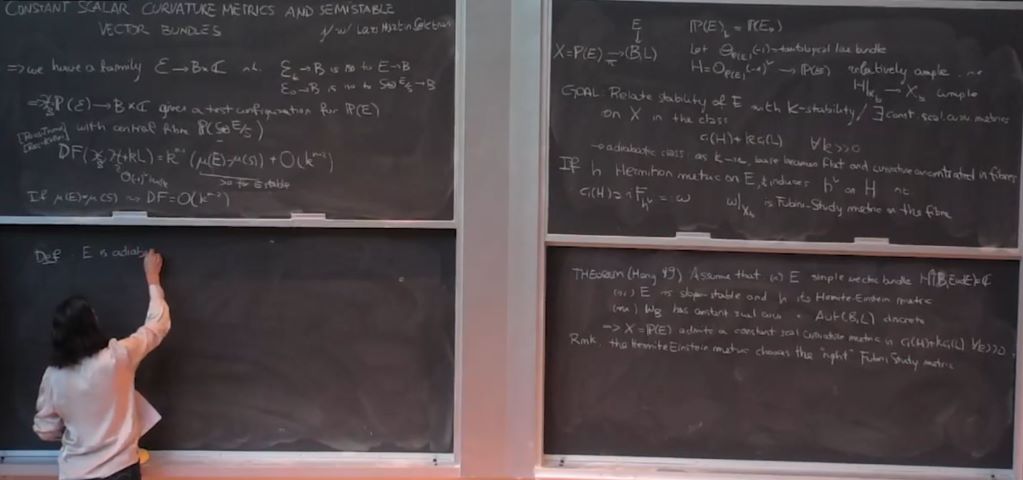 CONSTANT SCALAR CURVATURE METRICS AND SEMISTABLE
VECTOR BUNDLES
⇒ we have a family ℰ → B×ℂ st. ℰ_t → B is iso to E → B
ℰ_0 → B is iso to S⊕E/S → B
⇒ ℙ(ℰ) → B×ℂ gives a test configuration for ℙ(E)
with central fibre ℙ(S⊕E/S)
DF( +kL) = k^{n-1} (μ(E)-μ(S)) + O(k^{n-2})
>0 for E stable
If μ(E)=μ(S) → DF = O(k^{n-2})
Def. E is adiab
E
↓
ℙ(E)_b = ℙ(E_b)
X = ℙ(E) →_π (B,L)
Let O_{ℙ(E)}(-1) = tautological line bundle
H = O_{ℙ(E)}(-1)^∨ → ℙ(E) relatively ample
H|_{X_b} → X_b ample
GOAL: Relate stability of E with K-stability / ∃ const. scal. curv. metrics
on X in the class
c_1(H)+kc_1(L) ∀k>>0
→ adiabatic class as k→∞, base becomes flat and curvature concentrated in fibres
If h Hermitian metric on E, it induces h^∨ on H st
c_1(H) ∋ i F_{h^∨} = ω ω|_{X_b} is Fubini-Study metric on the fibre
THEOREM (Hong 99) Assume that (i) E simple vector bundle H^0(B, End E)=ℂ
(ii) E is slope-stable and h its Hermite-Einstein metric
(iii) ω_B has constant scal curv + Aut(B,L) discrete
⇒ X = ℙ(E) admits a constant scal curvature metric in c_1(H)+kc_1(L) ∀k>>0
Rmk. the Hermite Einstein metric chooses the "right" Fubini Study metric